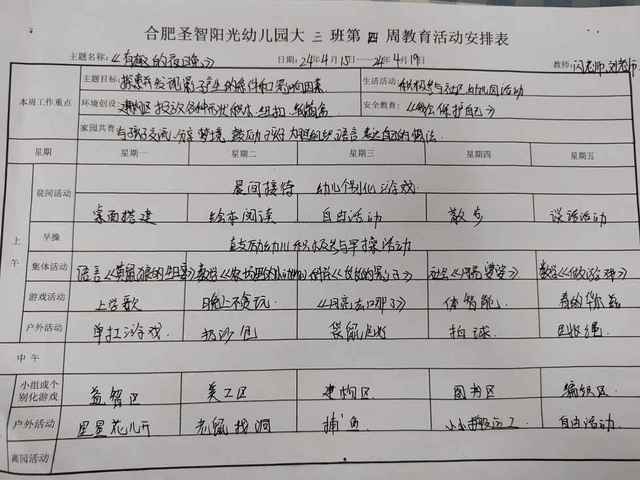 合肥圣智阳光幼儿园大三班第四周教育活动安排表
主题名称:《有趣的夜晚》 日期:24年4月15—24年4月19 教师:闪老师.刘老师
本周工作重点
主题目标: 探索并发现影子产生的条件和影响因素
生活活动: 积极参与幼儿园活动
环境创设: 建构区投放各种形状积木、纽扣、纸箱
安全教育:《学会保护自己》
家园共育: 与孩子交流,分享梦境,鼓励孩子大胆的用语言表达自己的想法
星期 星期一 星期二 星期三 星期四 星期五
上午
晨间活动 晨间接待 幼儿个别化游戏
桌面搭建 绘本阅读 自由活动 散步 谈话活动
早操 鼓励幼儿积极参与早操活动
集体活动 语言 数学 科学 社会 数学
游戏活动 上学歌 晚上不贪玩 《月亮去哪了》 体智能
户外活动 单杠游戏 扔沙包 袋鼠跳 拍球
中午
小组或个别化游戏 益智区 美工区 建构区 图书区 编织区
户外活动 星星花儿开 老鼠找洞 捕鱼 小小搬运工 自由活动
离园活动